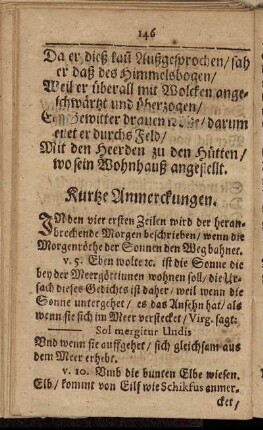 146
Da er dieß kaũ Außgesprochen / sah
er daß des Himmelsbogen /
Weil er überall mit Wolcken ange-
schwärtzt und überzogen /
Ein Gewitter drauen / darum
er durchs Feld /
Mit den Heerden zu den Hütten /
wo sein Wohnhauß angestellt.
Kurtze Anmerckungen.
INden vier ersten Zeilen wird der heran-
brechende Morgen beschrieben / wenn die
Morgenröthe der Sonnen den Weg bahnet.
v. 5. Eben wolte ꝛc. ist die Sonne die
bey der Meergöttinnen wohnen soll / die Ur-
sach dieses Gedichts ist daher / weil wenn die
Sonne untergehet / es das Ansehn hat / als
wenn sie sich im Meer verstecket / Virg. sagt:
Sol mergitur Undis
Und wenn sie auffgehet / sich gleichsam aus
dem Meer erhebt.
v. 10. Umb die bunten Elbe wiesen.
Elb / kommt von Eilf wie Schikfus anmer-
cket /